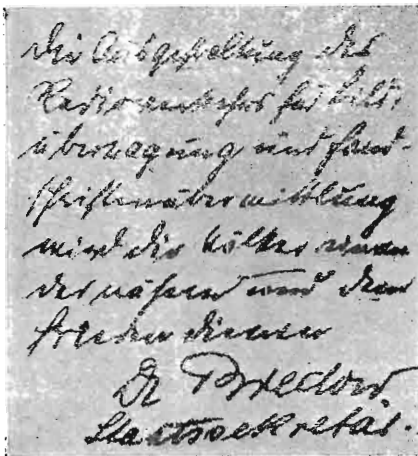 Die Ausgestaltung des
Radioverkehrs für Bild-
übertragung und Hand-
schriftenübermittlung
wird die Völker einan
der nähern und dem
Frieden dienen
Dr Bredow
Staatssekretär.